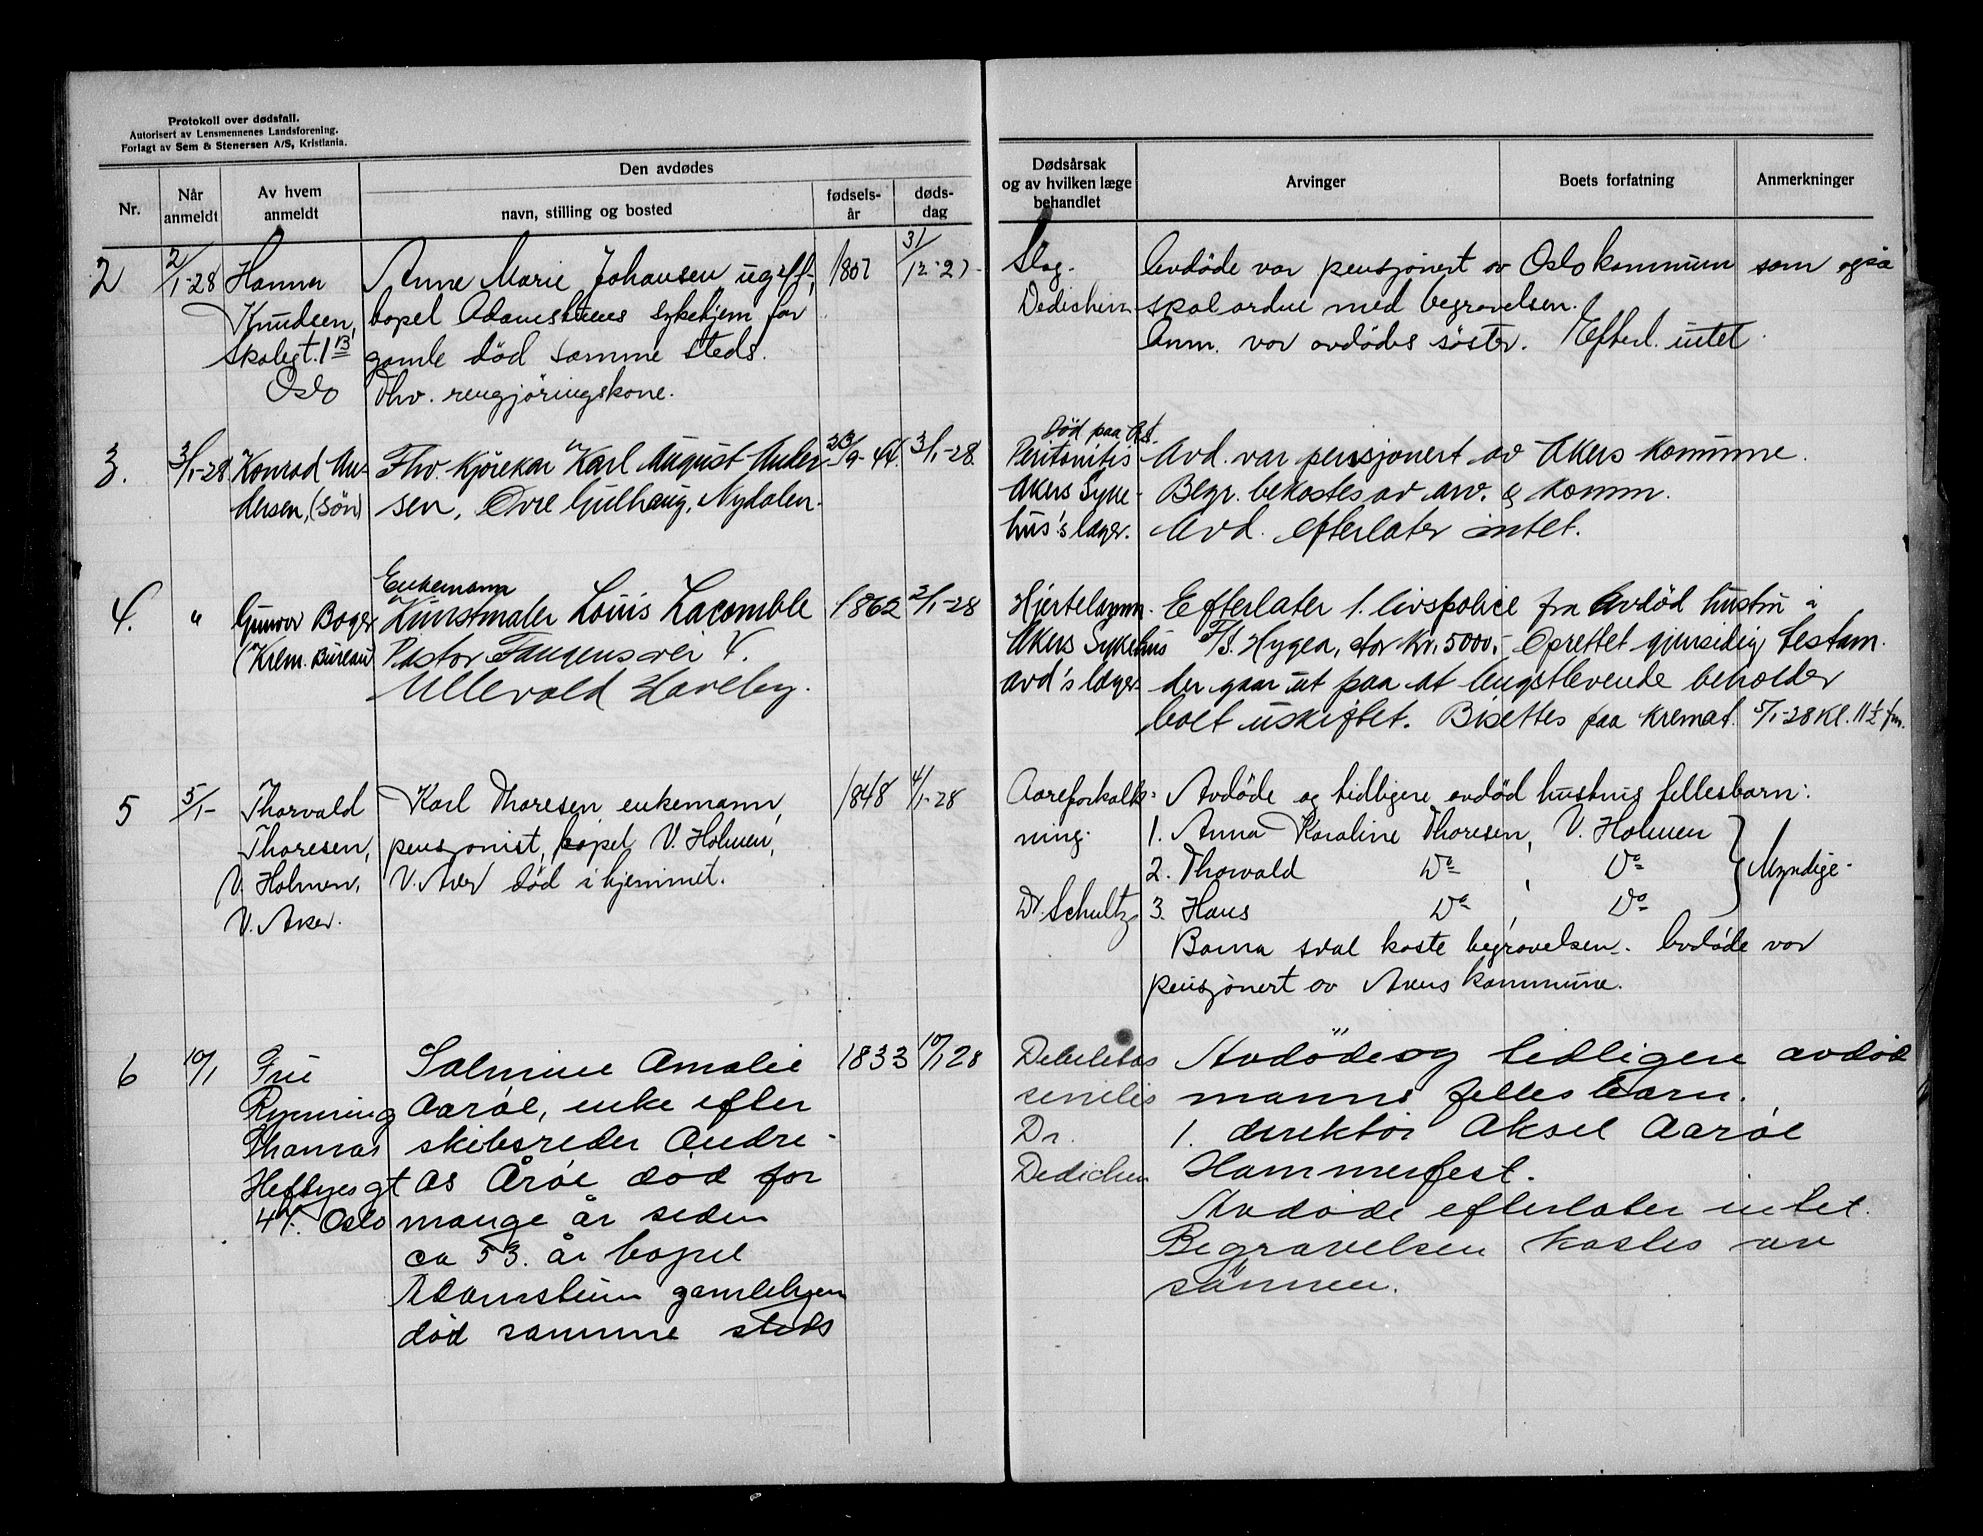 Protokoll over dødsfall.
Autorisert av Lensmennenes Landsforening.
Forlagt av Sem & Stenersen A/S, Kristiania.
Nr.
Når anmeldt
Av hvem anmeldt
Den avdødes
navn, stilling og bosted
fødsels-år
døds-dag
Dødsårsak og av hvilken læge behandlet
Arvinger
Boets forfatning
Anmerkninger
2 2/1-28 Hanna Anne Marie Johansen ugift, 31/12-27
Knudsen, bopel Adamstuens sykehjem for
Skolegt. 1 B gamle død samme steds.
Oslo Fhv. rengjøringskone.
Slag. Avdøde var pensjonert av Oslo kommune som også
Dedichen skal ordne med begravelsen.
Anm. var avdødes søster. Efterl. intet.
3. 3/1-28. Konrad An- Fhv. Kjørekar Karl August Ander- 23/9-44. 3/1-28.
dersen, (søn) sen, Øvre Gullhaug, Nydalen.
Død paa
Peritonitis Avd. var pensjonert av Akers Komune.
Akers Syke- Begr. bekostes av arv. & komm.
hus's læger. Avd. efterlater intet.
Enkemann
4. " Gunvor Boger Kunstmaler Louis Lacomble 1862 2/1-28
(Krem. Bureau) Pastor Fangens vei 4.
Ullevold Haveby.
Hjertelamm. Efterlater 1. livspolice fra avdød hustru i
Akers Sykehus F/S. Hygea, stor Kr. 5000,- Oprettet gjensidig testam.
avd's læger der gaar ut paa at lengstlevende beholder
boet uskiftet. Bisettes paa Kremat. 5/1-28 Kl. 11½ fm.
5 5/1- Thorvald Karl Thoresen, enkemann, 1848 4/1-28
Thoresen, pensjonist, bopel V. Holmen,
V. Holmen, V. Aker død i hjemmet.
V. Aker.
Aareforkalk- Avdøde og tidligere avdød hustrus fellesbarn:
ning. 1. Anna Karoline Thoresen, V. Holmen
2. Thorvald Do Do Myndige
Dr. Schultz 3. Hans Do Do
Barna skal koste begravelsen. Avdøde var
pensjonert av Akers kommune.
6 10/1 Frue Salmine Amalie 1833 10/1 28
Rynning Aarøe, enke efter
Thomas skibsreder Andre-
Heftyesgt as Årøe død for
47. Oslo mange år siden
ca 53. år bopel
Adamstuen gamlehjem
død samme steds
Debilitas Avdøde og tidligere avdød
senilis manns felles barn.
Dr. 1. direktør Aksel Aarøe
Dedichen Hammerfest.
Avdøde efterlater intet.
Begravelsen kostes av
sønnen.